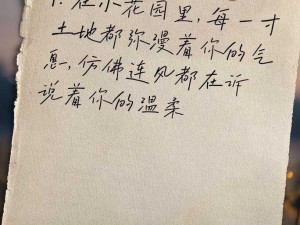 1. 在小花园里，每一寸
土地都弥漫着你的气
息，仿佛连风都在诉
说着你的温柔